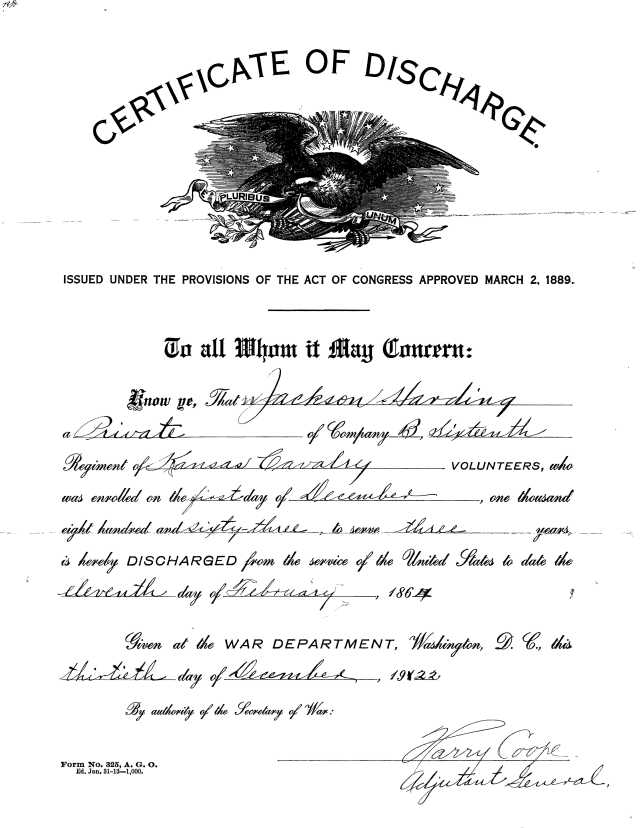 CERTIFICATE OF DISCHARGE.
PLURIBUS
UNUM
ISSUED UNDER THE PROVISIONS OF THE ACT OF CONGRESS APPROVED MARCH 2, 1889.
To all Whom it May Concern:
Know ye, That Jackson Harding
a Private of Company B, Sixteenth
Regiment of Kansas Cavalry VOLUNTEERS, who
was enrolled on the first day of December, one thousand
eight hundred and sixty-three, to serve three years,
is hereby DISCHARGED from the service of the United States to date the
eleventh day of February, 1864
Given at the WAR DEPARTMENT, Washington, D. C., this
thirtieth day of December, 1922
By authority of the Secretary of War:
Harry Coope
Adjutant General.
Form No. 325, A. G. O.
Ed. Jan. 31-13—1,000.